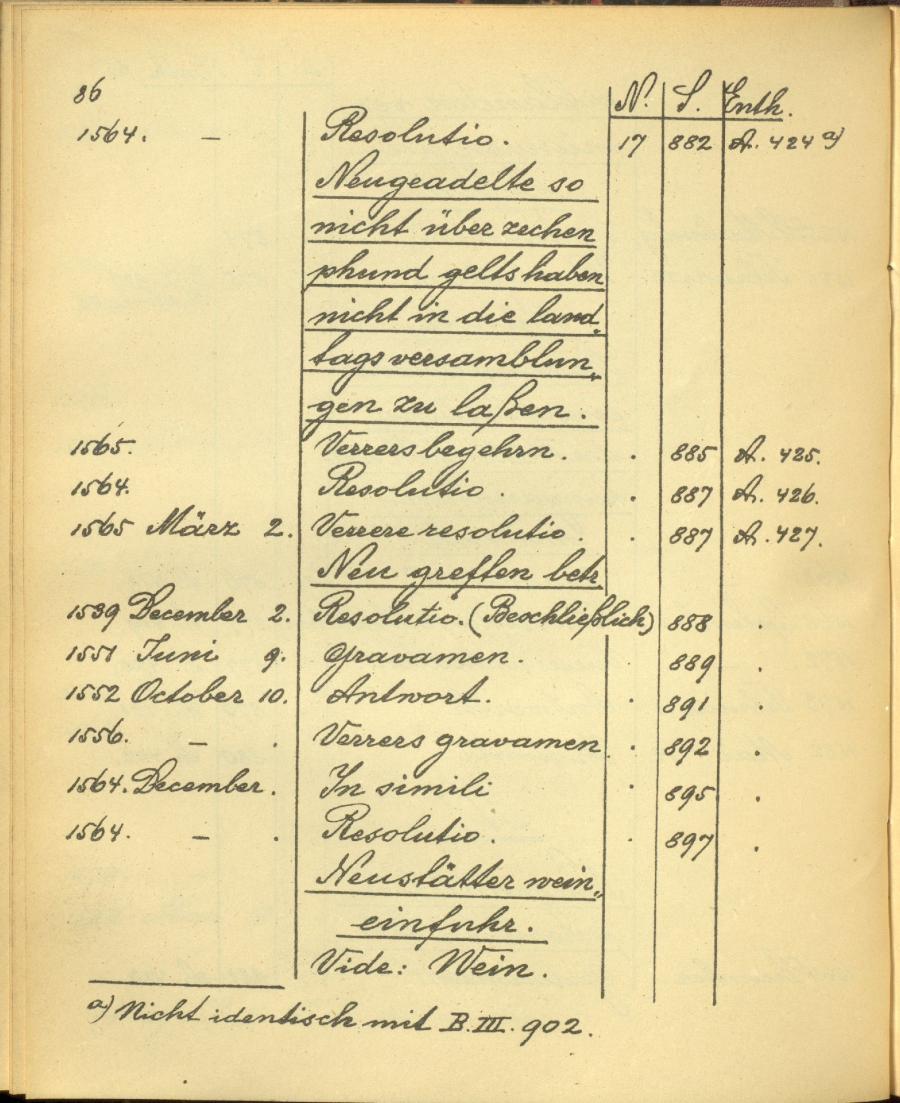 86
N. S. Enth.
1564. – Resolutio. 17 882 A. 424 a)
Neugeadelte so
nicht über zechen
phund gelts haben
nicht in die land„
tags versamblun„
gen zu laßen.
1565. Verrers begehrn. . 885 A. 425.
1564. Resolutio. . 887 A. 426.
1565 März 2. Verrere resolutio. . 887 A. 427.
Neu greften betr
1539 December 2. Resolutio. (Beschließlich) 888 .
1551 Juni 9. Gravamen. . 889 .
1552 October 10. Antwort. . 891 .
1556. – . Verrers gravamen . 892 .
1564. December. In simili . 895 .
1564. – . Resolutio. . 897 .
Neustätter wein„
einfuhr.
Vide: Wein.
a) Nicht identisch mit B. III. 902.